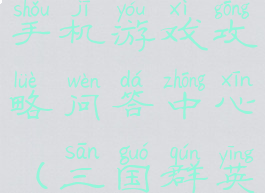 shǒu jī yóu xì gōng
手机游戏攻
lüè wèn dá zhōng xīn
略问答中心
sān guó qún yīng
（三国群英